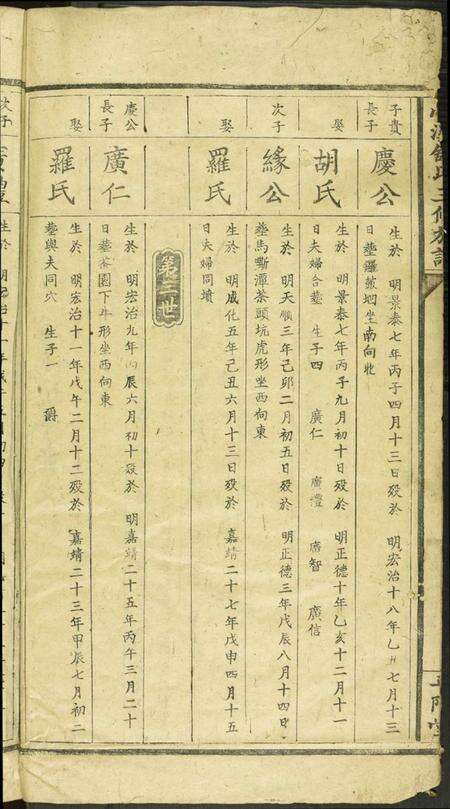 子貴
長子
慶公
生於 明景泰七年丙子四月十三日殁於 明宏治十八年乙丑七月十三
日塟羅坡坦坐南向北
娶
胡氏
生於 明景泰七年丙子九月初十日殁於 明正德十年乙亥十二月十一
日夫婦合塟 生子四 廣仁 廣禮 廣智 廣信
次子
緣公
生於 明天順三年己卯二月初五日殁於 明正德三年戊辰八月十四日
塟馬嘶潭茶頭坑虎形坐西向東
娶
羅氏
生於 明成化五年己丑六月十三日殁於 嘉靖二十七年戊申四月十五
日夫婦同墳
第三世
慶公
長子
廣仁
生於 明宏治九年丙辰六月初十殁於 明嘉靖二十五年丙午三月二十
日塟茶園下牛形坐西向東
娶
羅氏
生於 明宏治十一年戊午二月十二殁於 嘉靖二十三年甲辰七月初二
塟與夫同穴 生子一 爵
次子